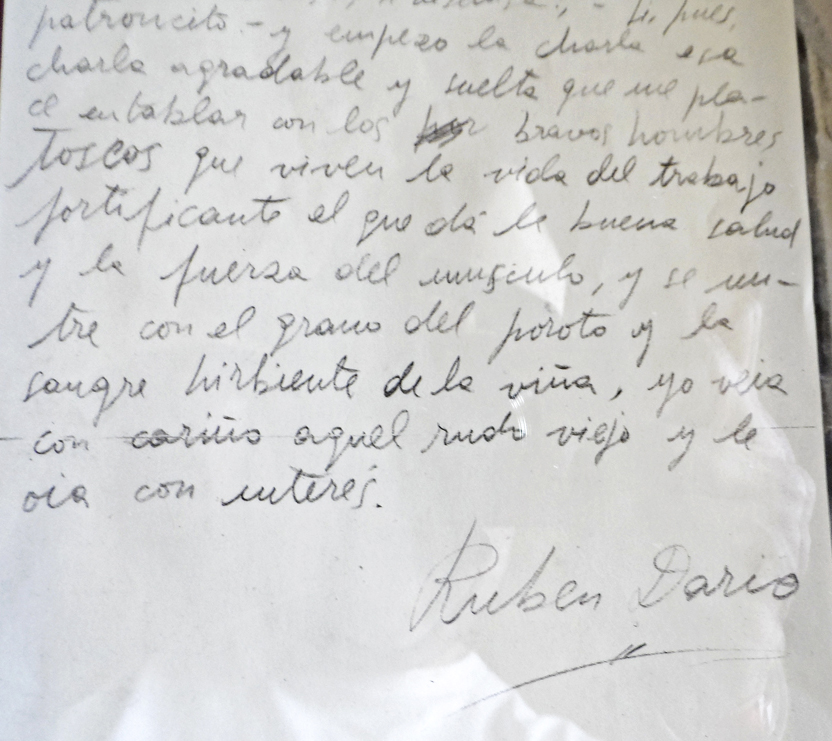 patroncito.- y empezo la charla esa
charla agradable y suelta que me pla-
ce entablar con los bravos hombres
toscos que viven la vida del trabajo
fortificante el que dá la buena salud
y la fuerza del musculo, y se nu-
tre con el grano del poroto y la
sangre hirbiente de la viña, yo veia
con cariño aquel rudo viejo y le
oia con interés.
Ruben Dario